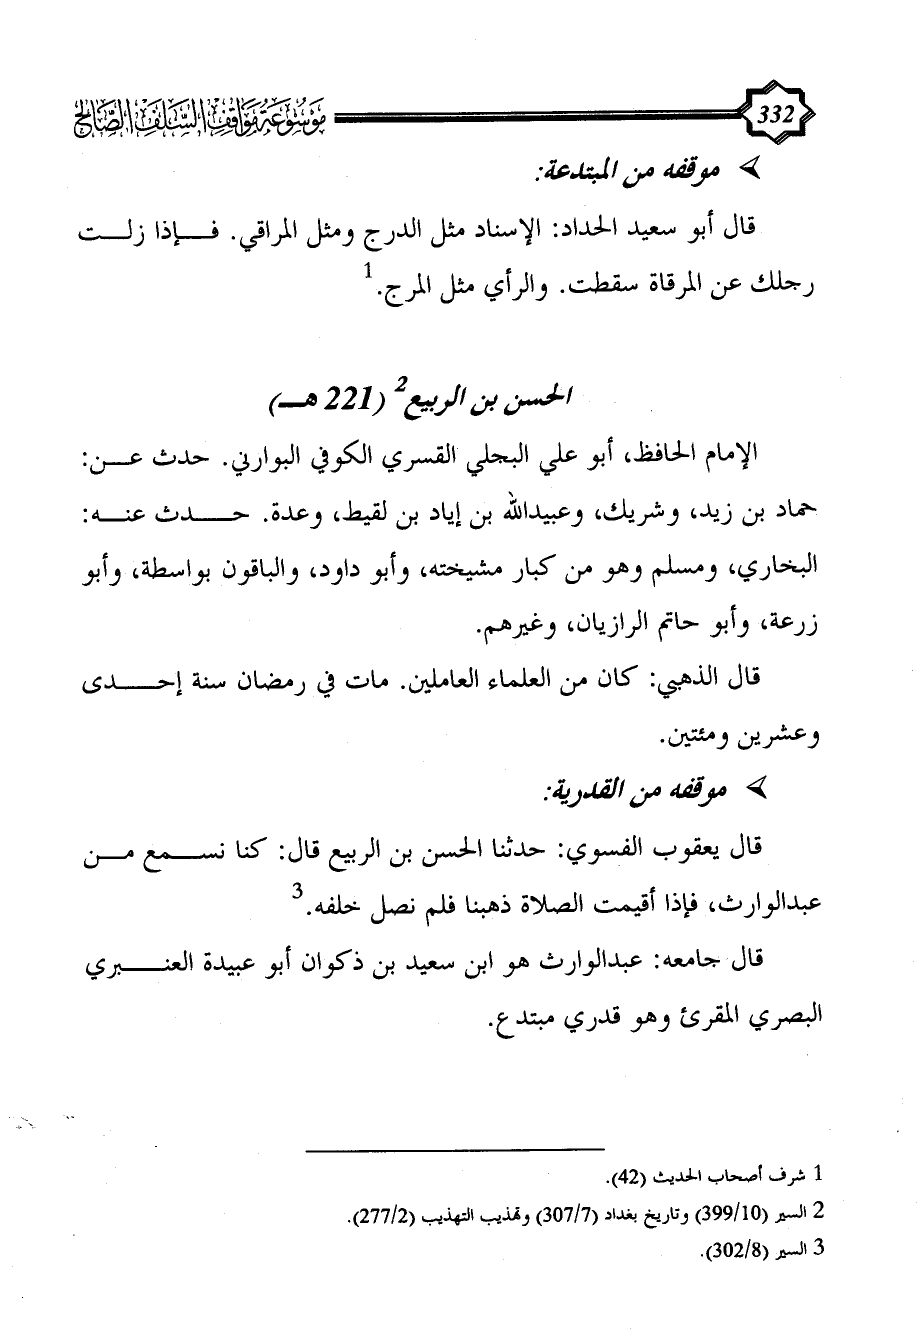 332
موسوعة مواقف السلف الصالح
موقفه من المبتدعة:
قال أبو سعيد الحداد: الإسناد مثل الدرج ومثل المراقي. فإذا زلت
رجلك عن المرقاة سقطت. والرأي مثل المرج.1
الحسن بن الربيع2 (221 هـ)
الإمام الحافظ، أبو علي البجلي القسري الكوفي البوارني. حدث عن:
حماد بن زيد، وشريك، وعبيدالله بن إياد بن لقيط، وعدة. حدث عنه:
البخاري، ومسلم وهو من كبار مشيخته، وأبو داود، والباقون بواسطة، وأبو
زرعة، وأبو حاتم الرازيان، وغيرهم.
قال الذهبي: كان من العلماء العاملين. مات في رمضان سنة إحدى
وعشرين ومئتين.
موقفه من القدرية:
قال يعقوب الفسوي: حدثنا الحسن بن الربيع قال: كنا نسمع من
عبدالوارث، فإذا أقيمت الصلاة ذهبنا فلم نصل خلفه.3
قال جامعه: عبدالوارث هو ابن سعيد بن ذكوان أبو عبيدة العنبري
البصري المقرئ وهو قدري مبتدع.
1 شرف أصحاب الحديث (42).
2 السير (399/10) وتاريخ بغداد (307/7) وتهذيب التهذيب (277/2).
3 السير (302/8).